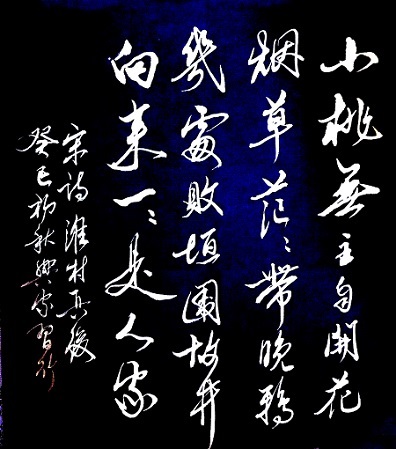 小桃無主自開花
烟草茫〻帶晚鴉
幾處敗垣圍故井
向来一〻是人家
宋詩淮村兵後
癸巳初秋